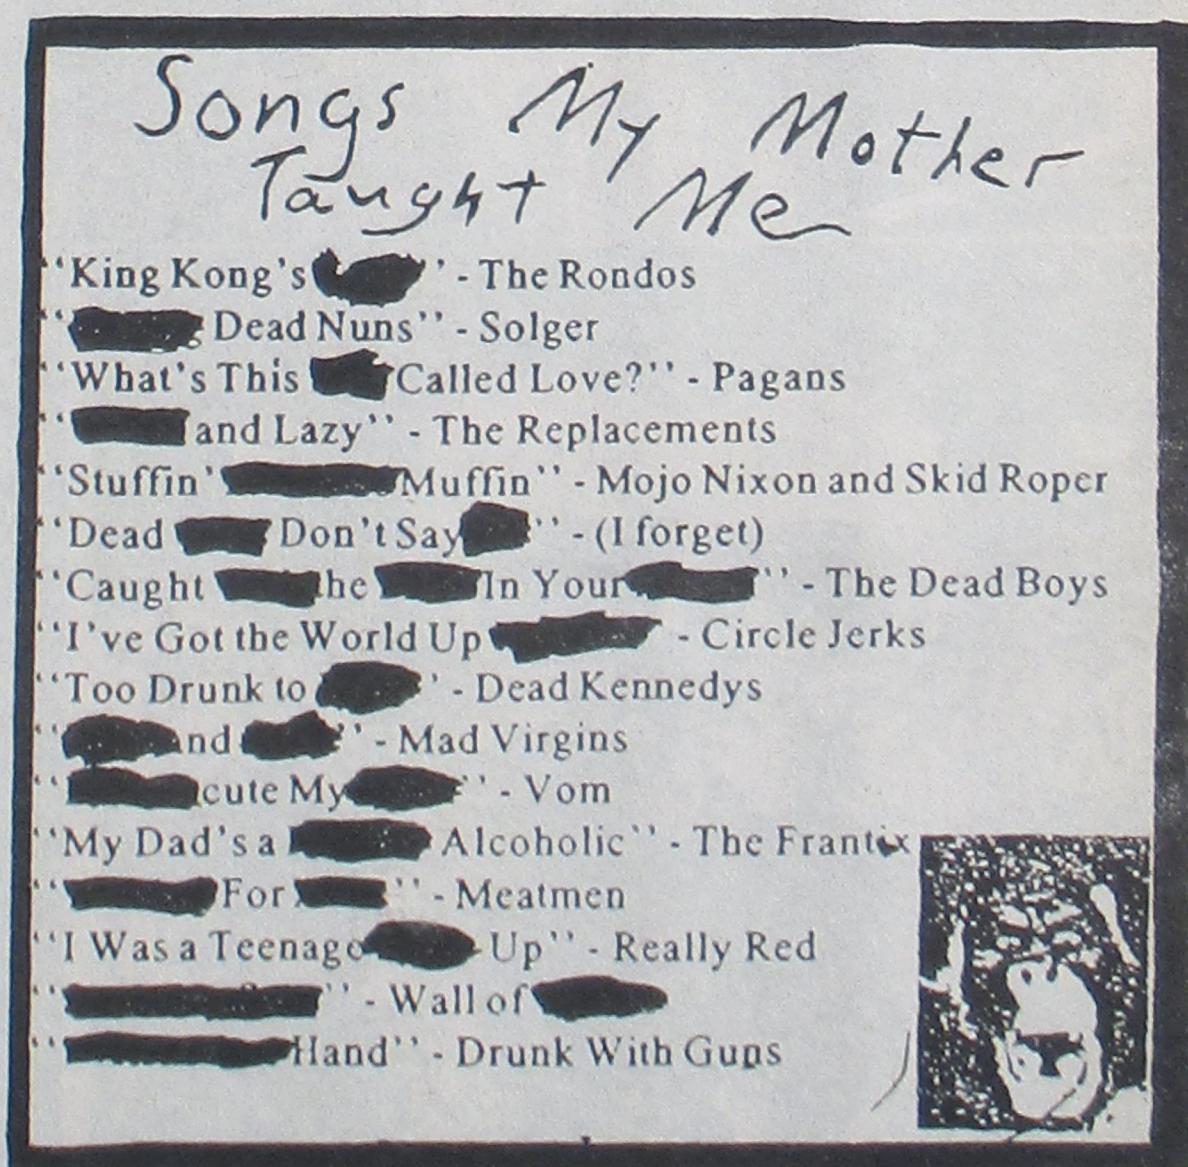 Songs My Mother
Taught Me
"King Kong's ' - The Rondos
" Dead Nuns" - Solger
"What's This Called Love?" - Pagans
" and Lazy" - The Replacements
"Stuffin' Muffin" - Mojo Nixon and Skid Roper
"Dead Don't Say " - (I forget)
"Caught the In Your " - The Dead Boys
"I've Got the World Up - Circle Jerks
"Too Drunk to ' - Dead Kennedys
" and " - Mad Virgins
" cute My " - Vom
"My Dad's a Alcoholic" - The Frantix
" For " - Meatmen
"I Was a Teenage Up" - Really Red
" " - Wall of
" Hand" - Drunk With Guns